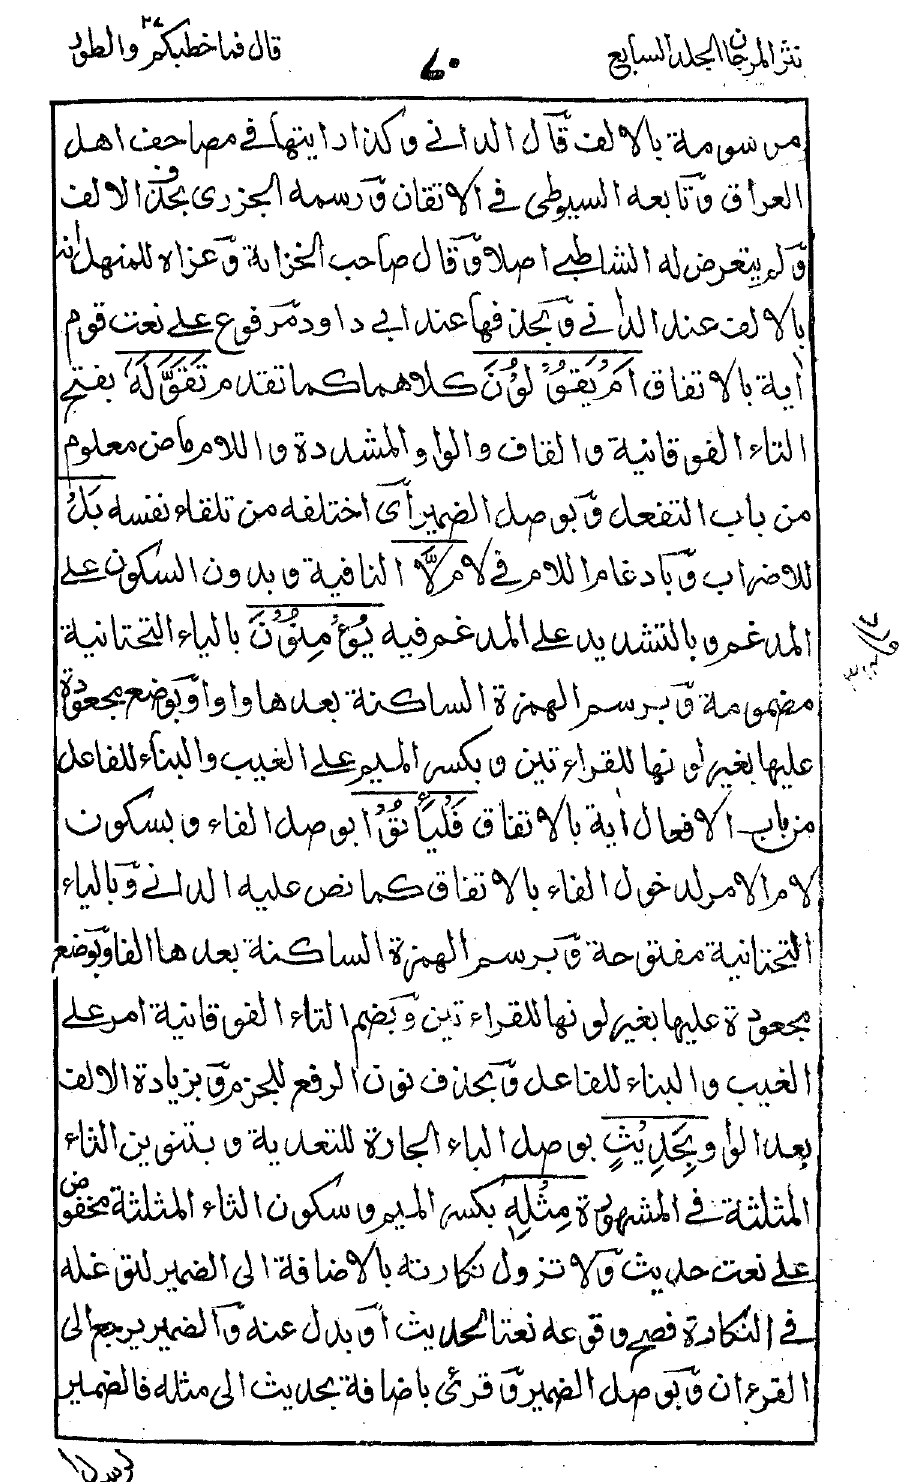 نثر المرجان الجلد السابع
٦٠
قال فما خطبكم ٢٧ والطور
مرسومة بالالف قَال الدانى وكذا رايتها فى مصاحف اهل
العراق وَتابعه السيوطى فى الاتقان وَرسمه الجزرى بحذف الالف
وَلم يتعرض له الشاطبى اصلا وَقال صاحب الخزانة وَعزاه للمنهل انه
بالالف عند الدانى وَبحذفها عند ابى داود مرفوع على نعت قوم
اٰية بالاتفاق اَمْ يَقُوْلُوْنَ كلاهما كما تقدم تَقَوَّلَهٗ بفتح
التاء الفوقانية والقاف والواو المشددة واللام ماض معلوم
من باب التفعل وَبوصل الضمير اَى اختلقه من تلقاء نفسه بَلْ
للاضراب وَبادغام اللام فى لام لَّا النافية وبدون السكون على
المدغم وبالتشديد على المدغم فيه يُؤْمِنُوْنَ بالياء التحتانية
مضمومة وَبرسم الهمزة الساكنة بعدها واوا وَبوضع مجعودة
عليها بغير لونها للقراءتين وبكسر الميم على الغيب والبناء للفاعل
من باب الافعال اٰية بالاتفاق فَلْيَأْتُوْا بوصل الفاء وبسكون
لام الامر لدخول الفاء بالاتفاق كما نص عليه الدانى وَبالياء
التحتانية مفتوحة وَبرسم الهمزة الساكنة بعدها الفا وَبوضع
مجعودة عليها بغير لونها للقراءتين وَبضم التاء الفوقانية امر على
الغيب والبناء للفاعل وَبحذف نون الرفع للجزم وَبزيادة الالف
بعد الواو بِحَدِيْثٍ بوصل الباء الجارة للتعدية وبتنوين الثاء
المثلثة فى المشهورة مِثْلِهٖ بكسر الميم وسكون الثاء المثلثة مخفوض
على نعت حديث وَلا تزول نكارته بالاضافة الى الضمير لتوغله
فى النكارة فصح وقوعه نعتا لحديث اَو بدل عنه وَالضمير يرجع الى
القرءان وَبوصل الضمير وَقرئ باضافة بحديث الى مثله فالضمير